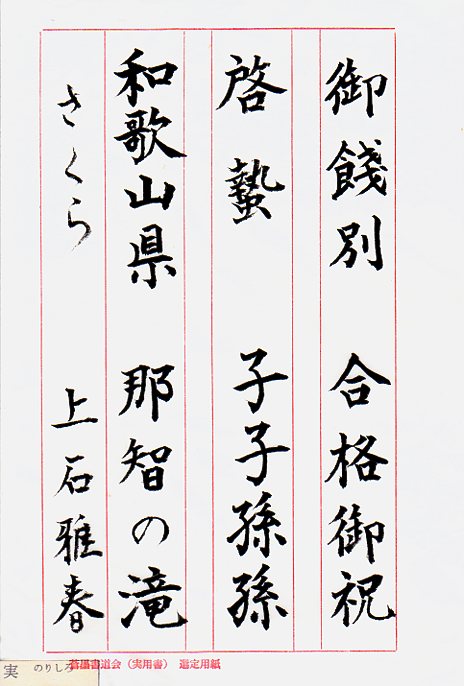 御餞別　合格御祝
啓蟄　子子孫孫
和歌山県　那智の滝
さくら　上石雅春
書道会（実用書）　選定用紙
実　のりしろ